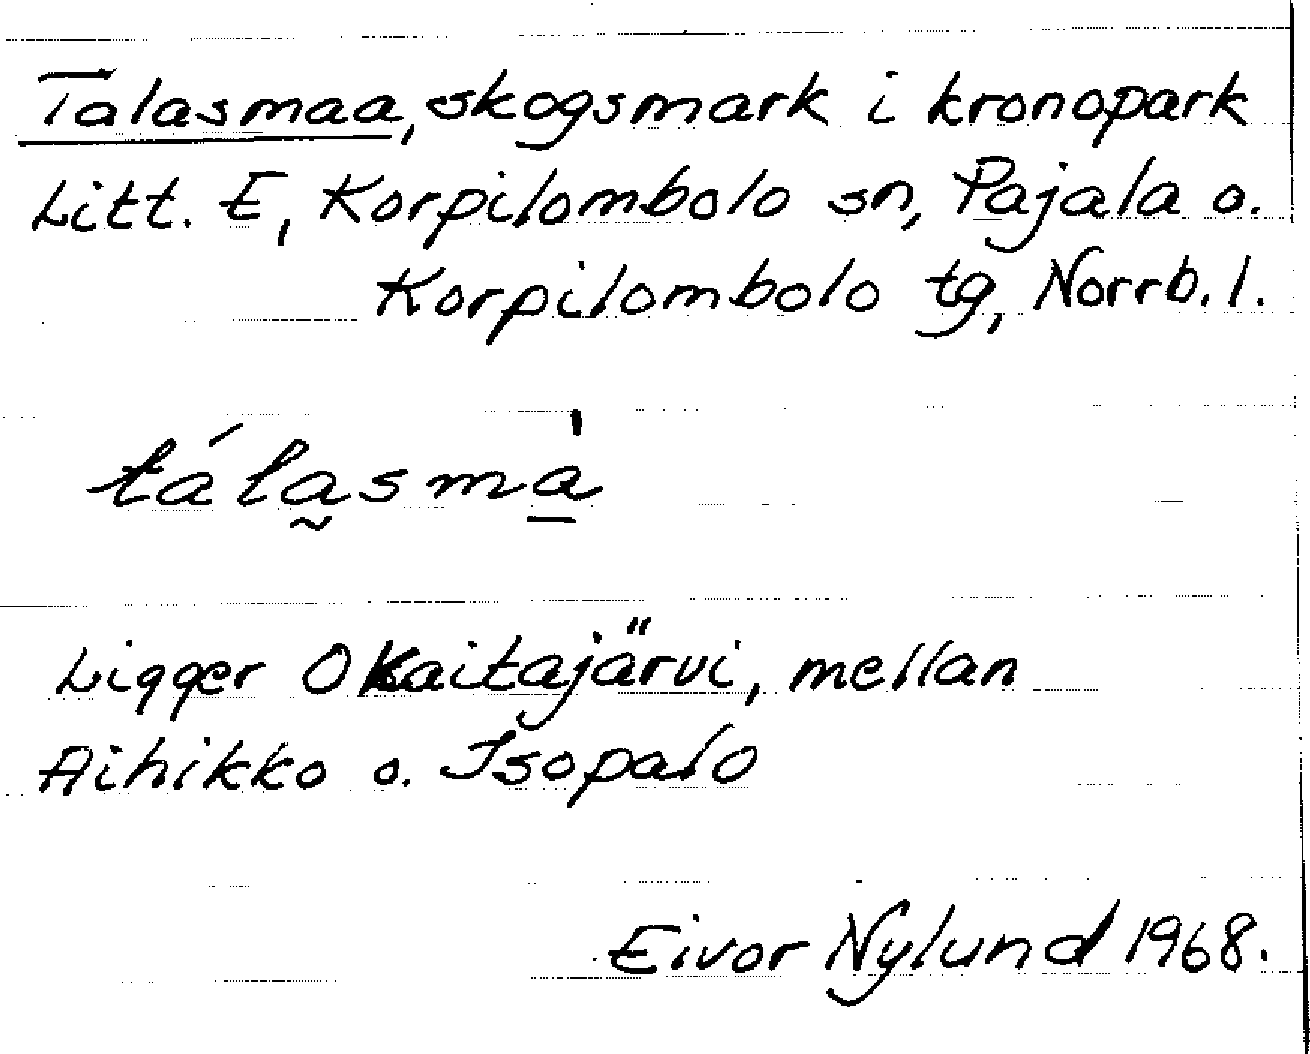 Talasmaa, skogsmark i kronopark
Litt. E, Korpilombolo sn, Pajala o.
Korpilombolo tg, Norrb. l.
tála̰smà̱
Ligger O Kaitajärvi, mellan
Aihikko o. Isopalo
Eivor Nylund 1968.